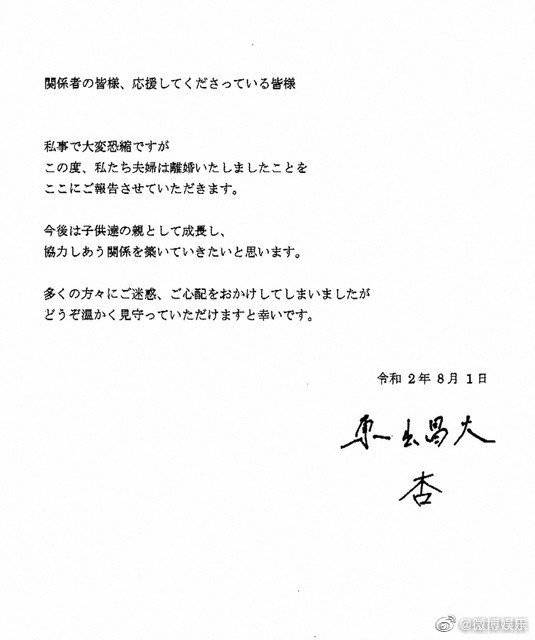 関係者の皆様、応援してくださっている皆様
私事で大変恐縮ですが
この度、私たち夫婦は離婚いたしましたことを
ここにご報告させていただきます。
今後は子供達の親として成長し、
協力しあう関係を築いていきたいと思います。
多くの方々にご迷惑、ご心配をおかけしてしまいましたが
どうぞ温かく見守っていただけますと幸いです。
令和 2年 8月 1日
東出昌大
杏
@微博娱乐